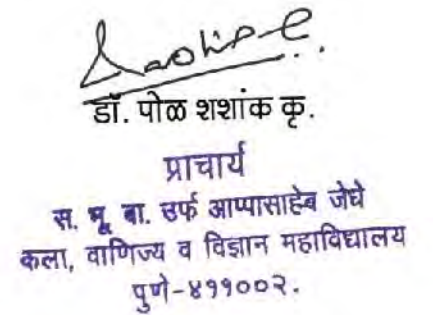 डॉ. पोळ शशांक कृ.
प्राचार्य
स. भू. बा. उर्फ आप्पासाहेब जेधे
कला, वाणिज्य व विज्ञान महाविद्यालय
पुणे-४११००२.